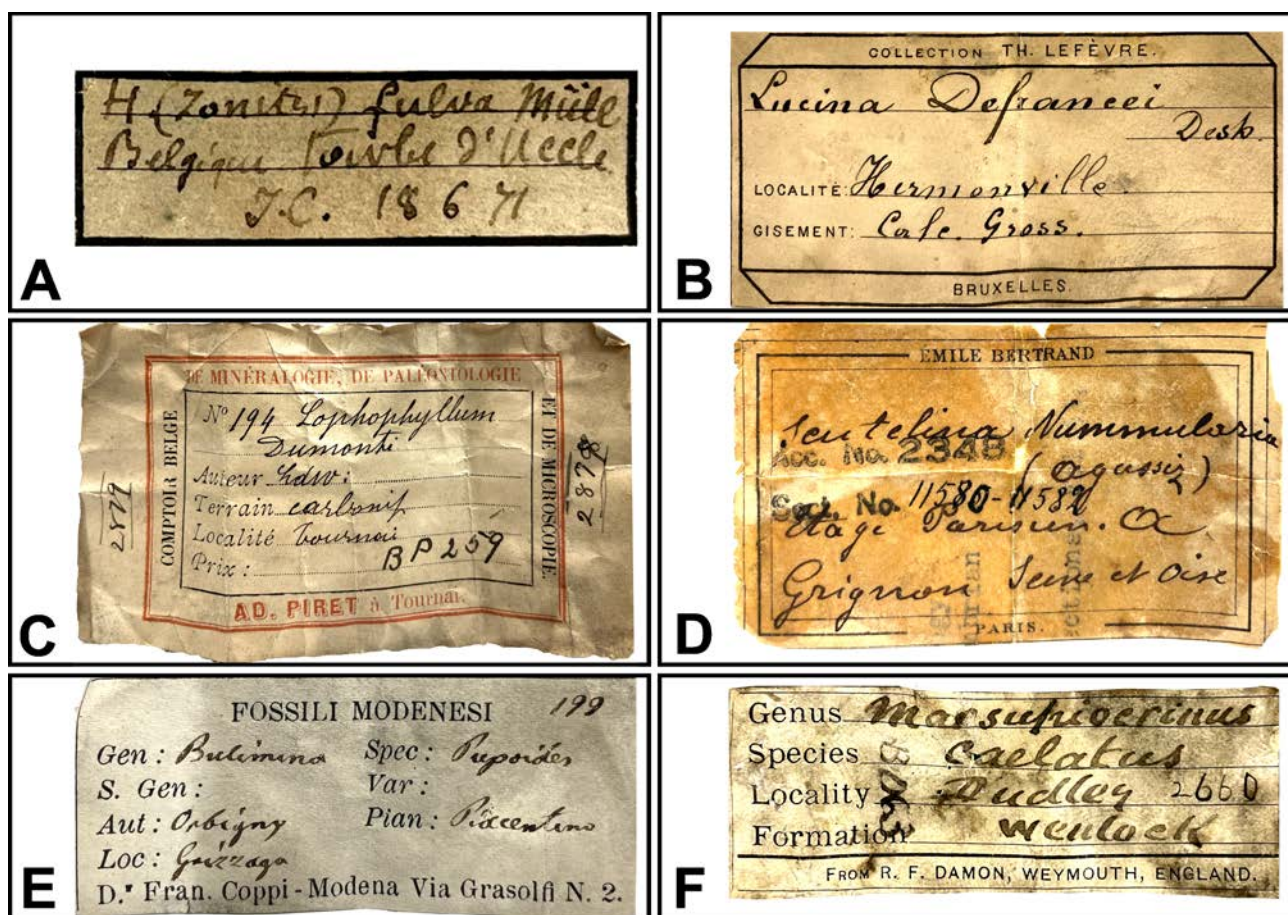 H (Zonites) fulva Müll
Belgique Tourbe d'Uccle
J.C. 1871
A
COLLECTION TH. LEFÈVRE.
Lucina Defrancei
Desh.
LOCALITÉ: Hermonville.
GISEMENT: Calc. Gross.
BRUXELLES.
B
DE MINÉRALOGIE, DE PALÉONTOLOGIE
COMPTOIR BELGE
ET DE MICROSCOPIE.
No 194 Lophophyllum
Dumonti
Auteur
Terrain carbonif
Localité Tournai
Prix: BP259
AD. PIRET à Tournai.
2879
2878
C
ÉMILE BERTRAND
Scutelina Nummularia
Acc. No. 2348
(Agassiz)
Sect. No. 11580-11582
Etage Parisien.
Grignon Seine et Oise
PARIS.
D
FOSSILI MODENESI 199
Gen: Bulimina Spec: Pupoides
S. Gen: Var:
Aut: Orbigny Pian: Piacentino
Loc: Grizzaga
D.r Fran. Coppi - Modena Via Grasolfi N. 2.
E
Genus Marsupiocrinus
Species Caelatus
Locality Dudley 2660
Formation Wenlock
FROM R. F. DAMON, WEYMOUTH, ENGLAND.
F